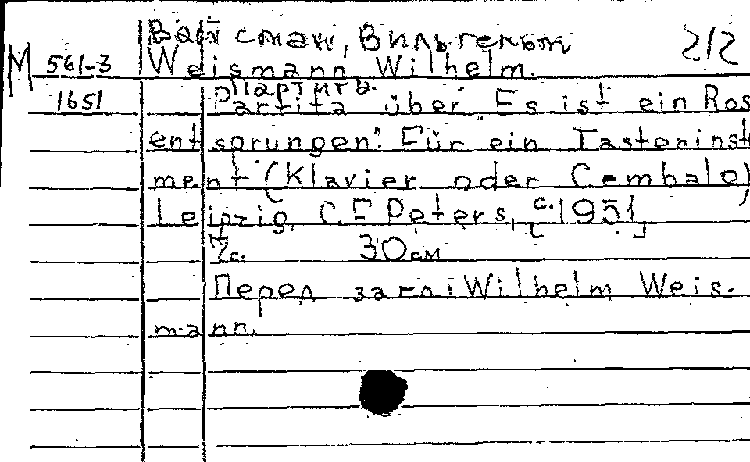 Вайсман, Вильгельм 2/2
М 561-3 Weismann Wilhelm.
Партита.
1651 Partita über "Es ist ein Ros
entsprungen". Für ein Tasteninst
ment (Klavier oder Cembalo)
Leipzig, C F Peters, [c. 1951]
7с. 30см
Перед загл: Wilhelm Weis-
mann.